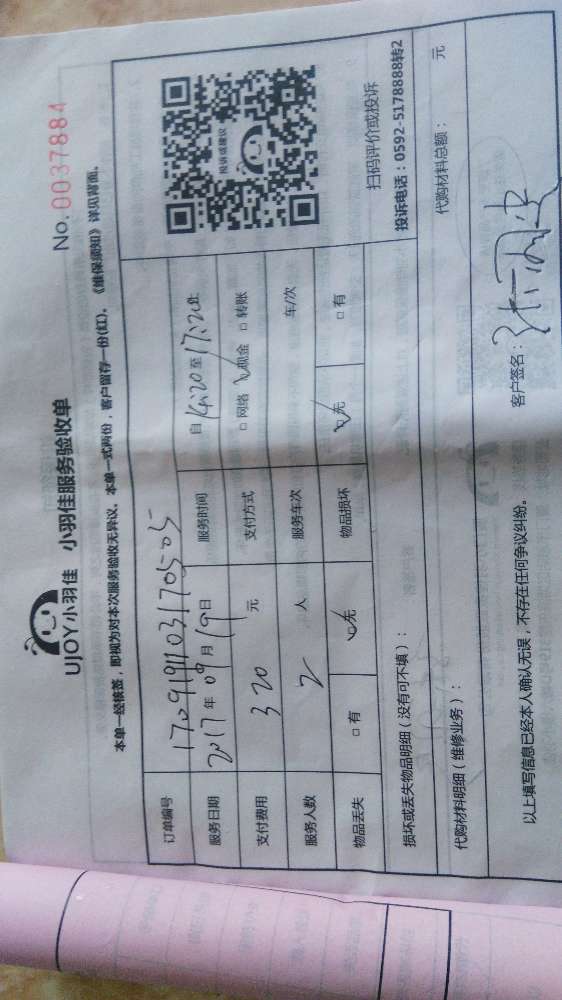 UJOY小羽佳 小羽佳服务验收单
No. 0037884
本单一经接签，即视为对本次服务验收无异议。本单一式两份，客户留存一份(红)。《维保须知》详见背面。
订单编号 1709191103170505
服务日期 2017年09月19日 服务时间 自14:20至17:20止
支付费用 320元 支付方式 □网络 ☑现金 □转账
服务人数 2人 服务车次 车/次
物品丢失 □有 ☑无 物品损坏 ☑无 □有
投诉或建议
扫码评价或投诉
投诉电话：0592-5178888转2
损坏或丢失物品明细（没有可不填）：
代购材料明细（维修业务）： 代购材料总额： 元
以上填写信息已经本人确认无误，不存在任何争议纠纷。 客户签名：